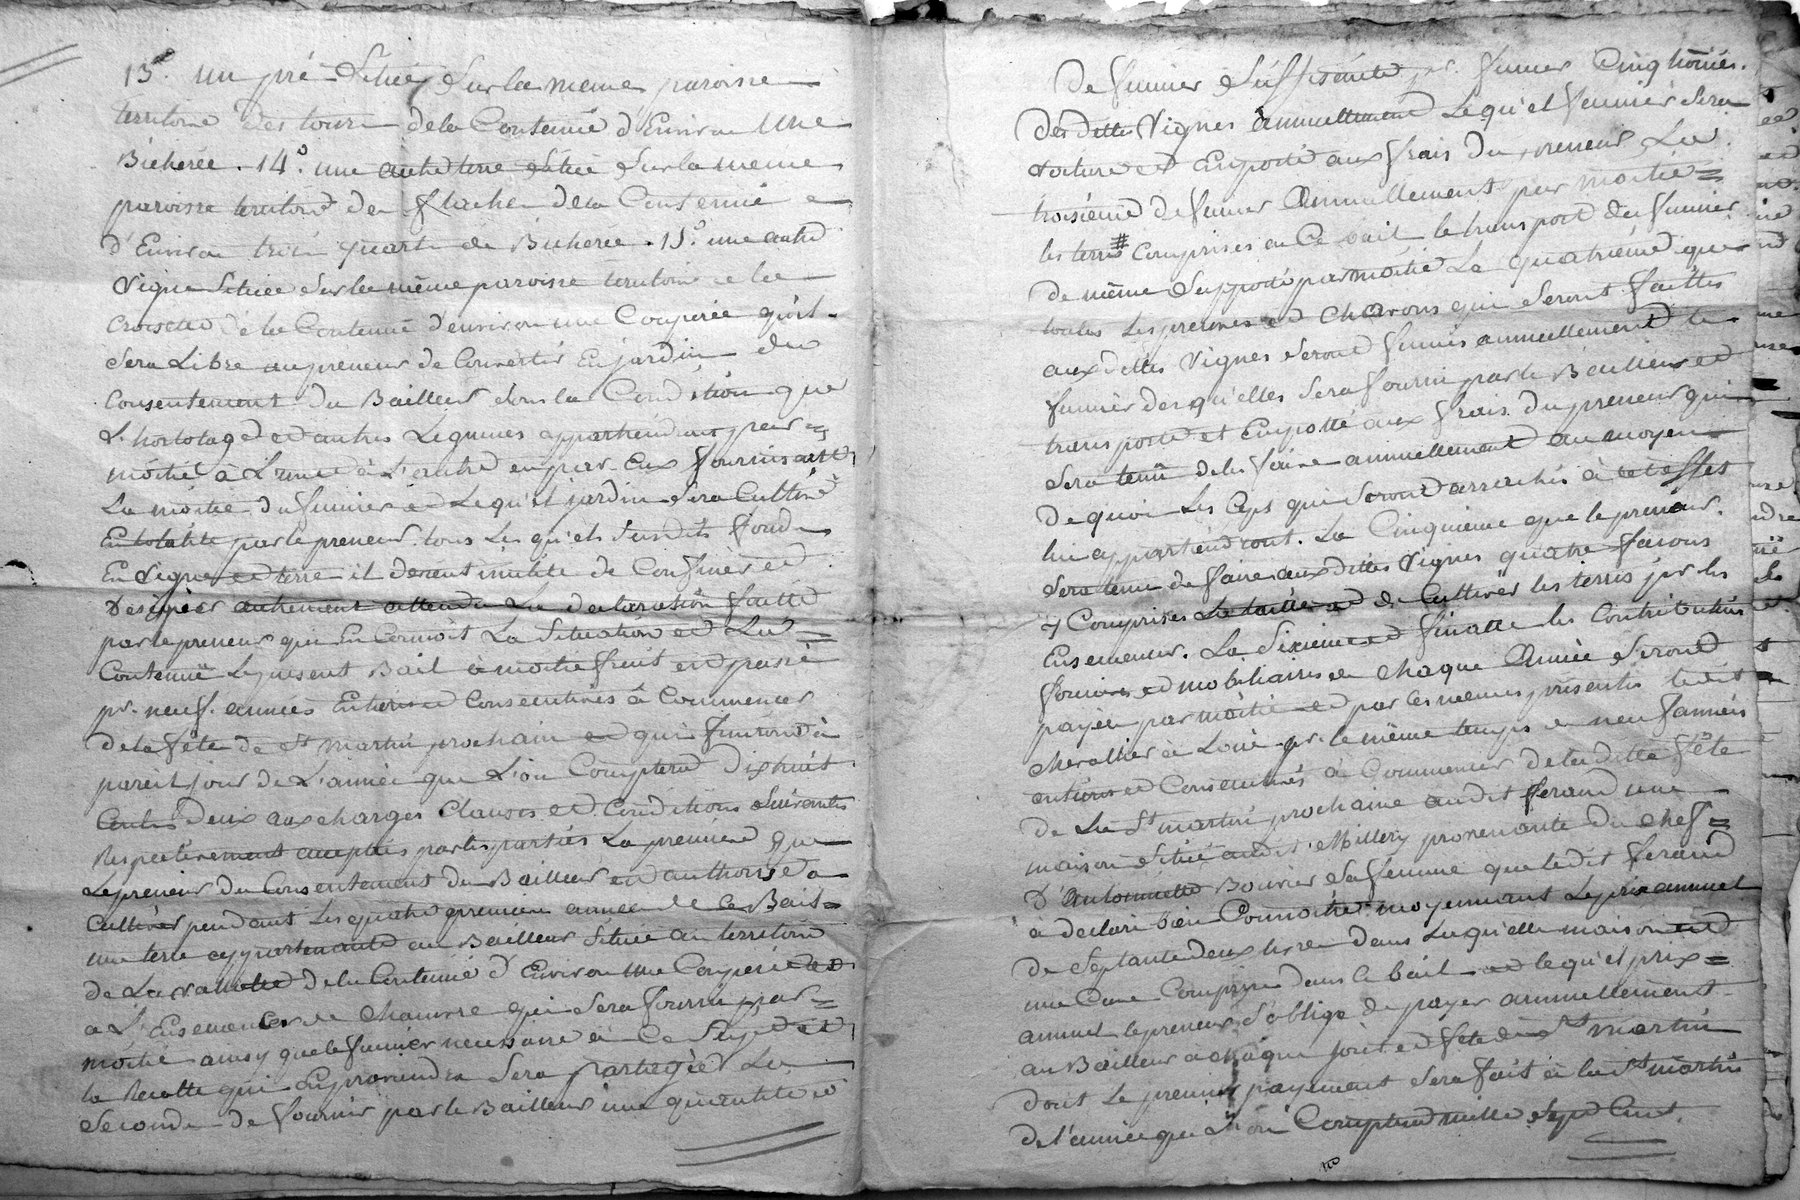 13°. un pré Situé Sur la meme paroisse
territoire des tours de la Contenüe d'Environ Une
Bicherée. 14°. une autre terre Située Sur la meme
paroisse territoire des flaches de la Contenüe
d'Environ trois quarts de Bicherée. 15°. une autre
Vigne Située Sur la même paroisse territoire de la
Croisette de la Contenüe d'environ une Couperée qu'il
Sera Libre au preneur de Convertir En jardin du
Consentement du Bailleur Sous la Condition que
L'hortolage et autres Legumes appartiendront par
moitié à L'une à L'autre en par Eux fournissant
La moitié du fumier et Lequ'el jardin Sera Cultivé
En totalité par le preneur. tous Lesqu'els Susdits fonds
En Vigne et terre il devient inutile de Confiner et
Designer autrement attendu La declaration faitte
par le preneur qui En Connoit La Situation et La
Contenüe Le present Bail à moitié fruit est passé
pr. neuf années Entieres et Consecutives à Commencer
de la fête de St martin prochain et qui finiront à
pareil jour de L'année que L'on Comptera Dixhuit
Cents deux aux charges Clauses et Conditions Suivantes
Respectivement acceptées par les parties La premiere que
Le preneur du Consentement du Bailleur est authorisé a
Cultiver pendant Les quatre premieres années de Ce Bail
une terre appartenante au Bailleur Située au territoire
de La de la Contenüe d'Environ une Couperée et
a L'Ensemencer de Chanvre qui Sera fourni par
moitié ainsy que le fumier necessaire à Ce Sujet et
la Recolte qui En proviendra Sera partagée La
Seconde de fournir par le Bailleur une quantité
De fumier Suffisante pr. fumer Cinq hommées
des dittes Vignes annuellement Lequ'el fumier Sera
Voituré et Enporté aux frais du preneur La
troisieme de fumer Annuellement par moitié
les terres # Comprises au Ce bail le transport du fumier
de même Supporté par moitié La quatrieme que
toutes Les preuves et Chavons qui Seront faittes
aux dittes Vignes Seront fumés annuellement le
fumier des qu'elles Sera fourni par le Bailleur et
transporté et Emporté aux frais du preneur qui
Sera tenü de le faire annuellement au moyen
de quoi Les Ceps qui Seront arrachés à cet effet
lui appartiendront. La Cinquieme que le preneur
Sera tenu de faire aux dittes Vignes quatre façons
y Comprises La taille et de Cultiver les terres pr les
Ensemencer. La Sixieme et finalle les Contributions
foncieres et mobiliaires de Chaque Année Seront
payées par moitié et par les memes presentes ledit
Chevallier à Loüé pr. le même temps de neuf années
entieres et Consecutives à Commencer de laditte fête
de La St martin prochaine audit ferand une
maison Située audit Millery provenante du Chef
d'Antoinette Bouvier Sa femme que ledit ferand
à declaré bien Connoitre moyennant Le prix annuel
de Septante deux livres dans Laqu'elle maison est
une Cave Comprise dans le bail et lequ'el prix
annuel le preneur S'oblige de payer annuellement
au Bailleur à chaque jour et fête de St martin
dont Le premier payement Sera fait à la St martin
de l'année que L'on Comptera mille Sept Cent